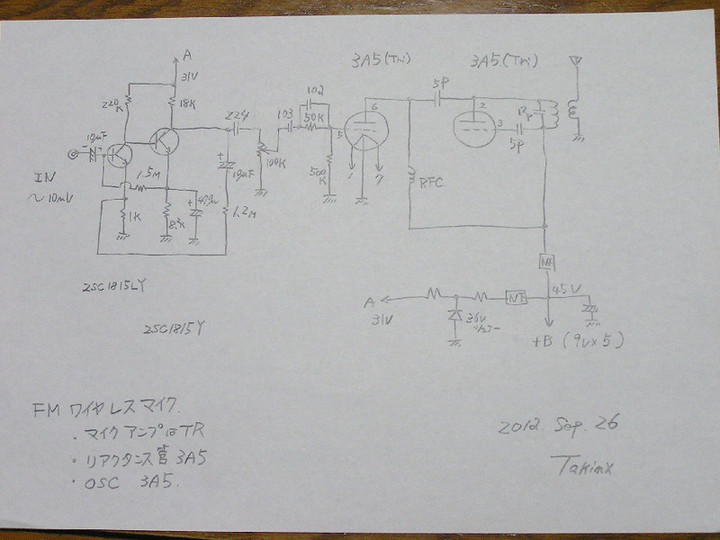 3A5(Tri) 3A5.(Tri)
A
31V
220K
18K
5P
102
103
50K
224
10μF
6
2
3
5
5P
100K
500K
1
7
RFC
IN
~10mV
1.5M
10μF
1K
8.2K
1.2M
2SC1815LY
2SC1815Y
A
31V
45V
+B (9V×5)
FM ワイヤレスマイク.
・マイクアンプはTR
・リアクタンス管 3A5
・OSC 3A5.
2012. Sep. 26